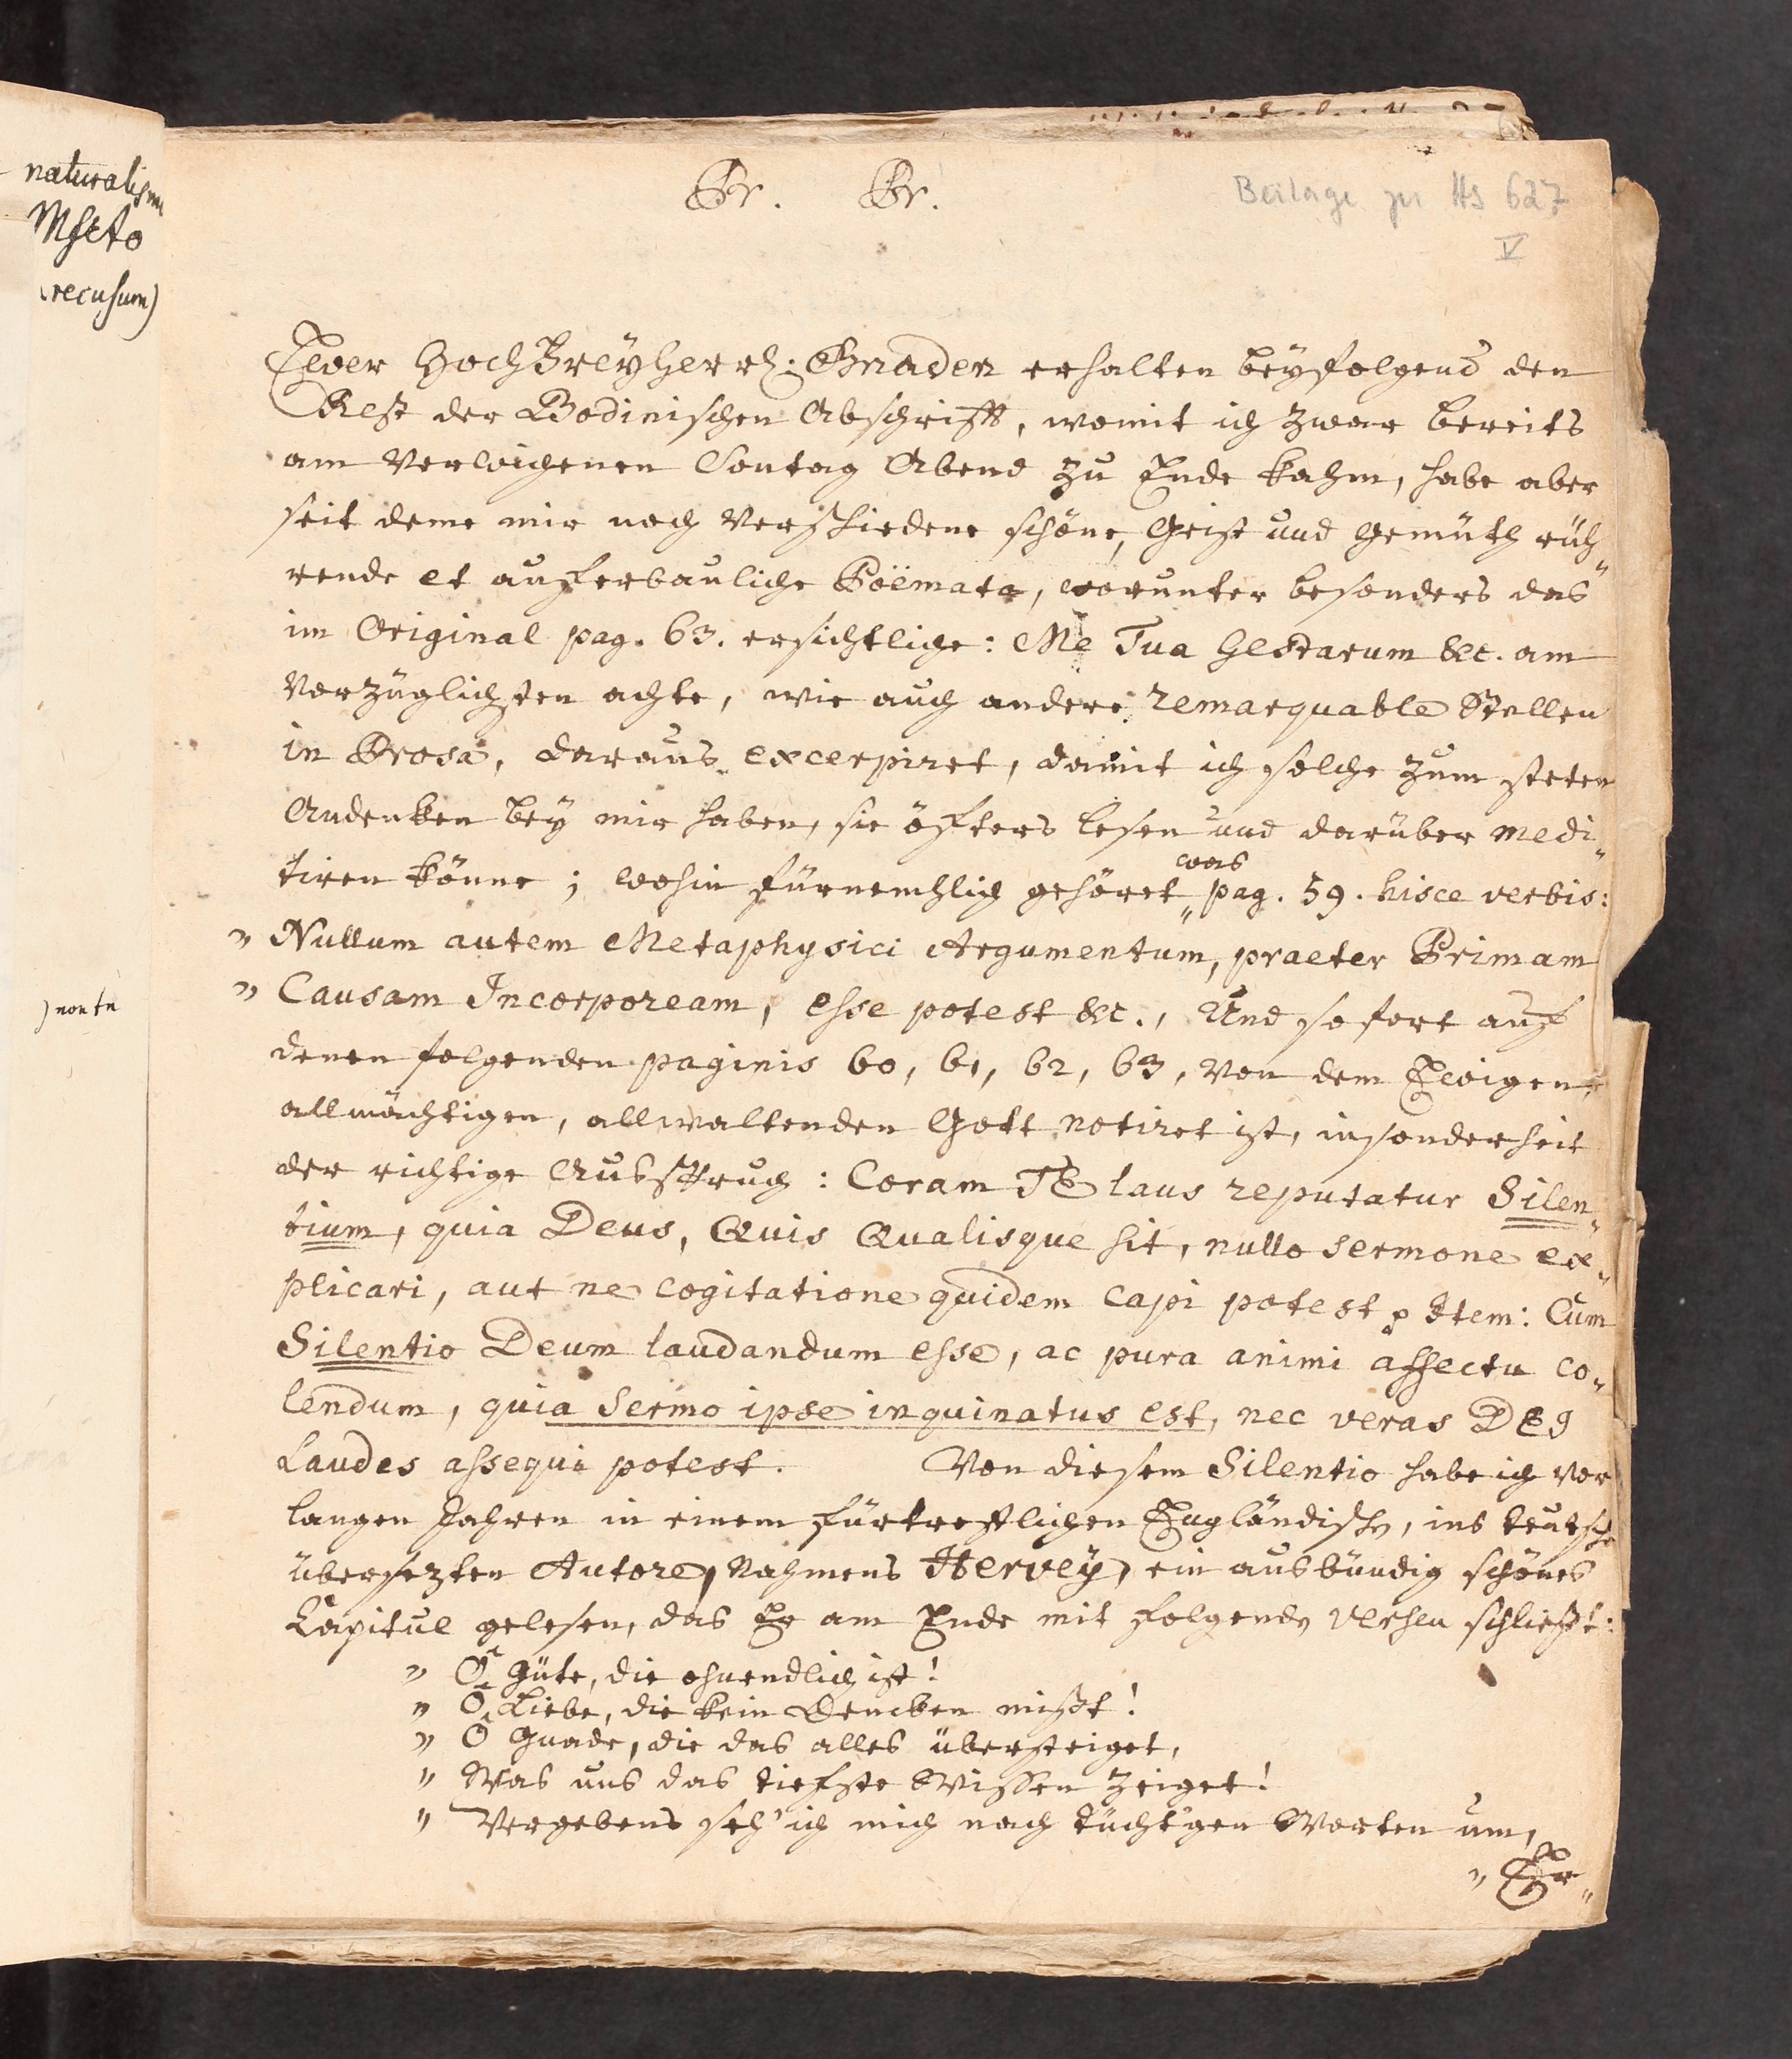 naturalism
Mscto
recusum)
) non tn
Pr. Pr.
Beilage zu Hs 627
V
Ewer HochFreyHerrl: Gnaden erhalten beyfolgend den
Rest der Bodinischen Abschrifft, womit ich zwar bereits
am verwichenen Sontag Abend zu Ende kahm, habe aber
seit deme mir noch verschiedene schöne, Geist und Gemüth rüh„
rende et auferbauliche Poëmata, worunter besonders das
im Original pag. 63. ersichtliche: Me Tua Gestarum &c. am
vorzüglichsten achte, wie auch andere remarquable Stellen
in Prosa, daraus excerpiret, damit ich solche zum steten
Andenken bey mir haben, sie öfters lesen und darüber medi„
tiren könne; wohin fürnemlich gehöret was pag. 59. hisce verbis:
„ Nullum autem Metaphysici Argumentum, praeter Primam
„ Causam Incorpoream, esse potest &c., Und so fort auf
denen folgenden paginis 60, 61, 62, 63, von dem Ewigen,
allmächtigen, allwaltenden Gott notiret ist, insonderheit
der richtige Ausspruch: Coram TE laus reputatur Silen„
tium, quia Deus, Quis Qualisque sit, nullo sermone ex„
plicari, aut ne cogitatione quidem capi potest p Item: Cum
Silentio Deum laudandum esse, ac pura animi affectu co„
lendum, quia Sermo ipse inquinatus est, nec veras DEI
Laudes assequi potest. Von diesem Silentio habe ich vor
langen Jahren in einem fürtreflichen Engländischen, ins teutsche
übersezten Autore, Nahmens Hervey, ein ausbündig schönes
Capitul gelesen, das Er am Ende mit folgenden Versen schließt:
„ O Güte, die ohnendlich ist!
„ O Liebe, die kein Dencken mißt!
„ O Gnade, die das alles übersteiget,
„ Was uns das tiefste Wissen zeiget!
„ Vergebens seh' ich mich nach tücht'gen Worten um,
„ Er„